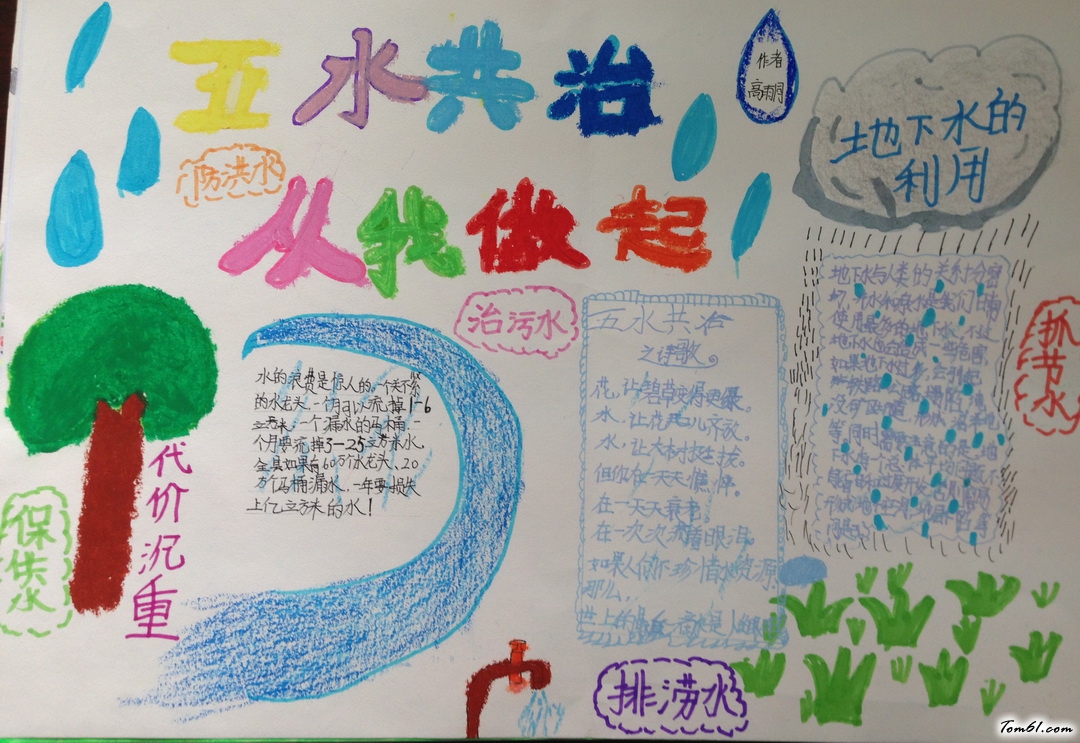 五水共治
作者
高翡玥
地下水的
利用
防洪水
从我做起
治污水
五水共治
之诗歌
花，让碧草变得更绿。
水，让花儿齐放。
水，让大树挺拔。
但你在一天天憔悴。
在一天天衰老。
在一次次流着眼泪。
如果人们不珍惜水资源
那么..
世上的最后一滴水是人的眼
地下水与人类的关系十分密
切，井水和泉水是我们日常
使用最多的地下水，不过
地下水也会造成一些危害
如果地下水过多，会引起
抓节水
水的浪费是惊人的，一个关不紧
的水龙头，一个月可以流掉1-6
立方米，一个漏水的马桶，一
个月要流掉3-25立方米水，
全县如果有60万个水龙头，20
万个马桶漏水，一年要损失
上亿立方米的水！
代价沉重
保供水
排涝水
Tom61.com